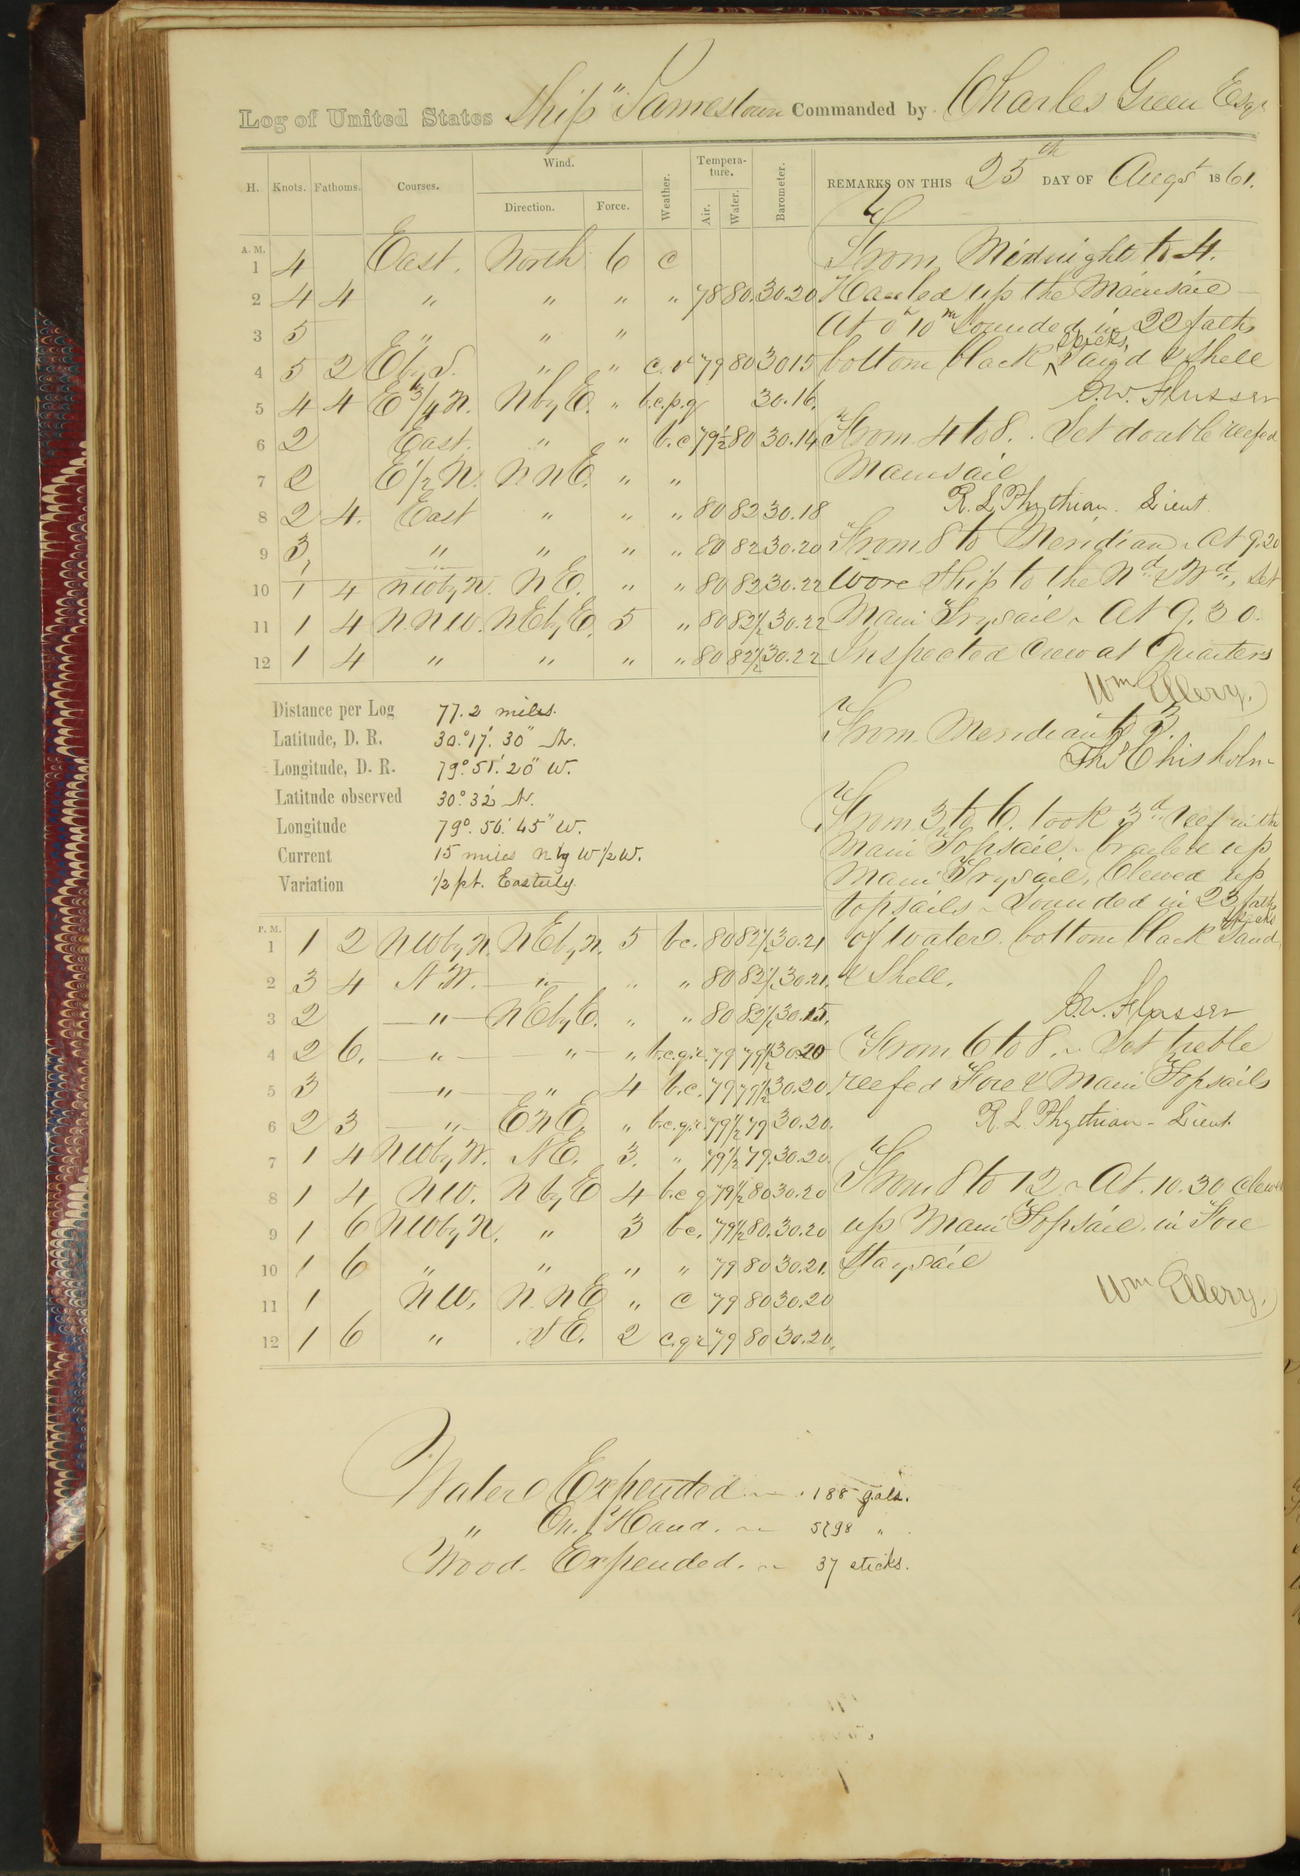 Log of United States Ship "Jamestown" Commanded by Charles Green Esqr
H. Knots. Fathoms. Courses. Wind. Direction. Force. Weather. Tempera-ture. Air. Water. Barometer. REMARKS ON THIS 25th DAY OF Augst 1861.
A. M.
1 4 East. North 6 c
2 4 4 " " " " 78 80 30.20
3 5 " " "
4 5 2 E by S. " " c.r 79 80 30 15
5 4 4 E 3/4 N. N by E. " b.c.p.q 30.16.
6 2 East. " " b.c 79½ 80 30.14
7 2 E ½ N. N N E. " "
8 2 4. East " " " 80 82 30.18
9 3, " " " " 80 82 30.20
10 1 4 NW by N. N E. " " 80 82 30.22
11 1 4 N.NW. NE by E. 5 " 80 82½ 30.22
12 1 4 " " " " 80 82½ 30.22
From Midnight to 4.
Hauled up the Mainsail
At 0h 10m Sounded in 22 faths
bottom black specks, sand & Shell
C.W. Flusser
From 4 to 8. Set double reefed
Mainsail
R. L. Phythian. Lieut.
From 8 to Meridian. At 9.20
Wore Ship to the Nd & Wd, Set
Main Trysail. At 9.30.
Inspected Crew at Quarters
Wm Ellery.
From Meridian to 3.
Ths Chisholm
From 3 to 6. took 3d reef in the
Main Topsail. brailed up
Main Trysail, Clewed up
topsails. Sounded in 23 faths
of water. bottom black specks Sand,
& Shell.
C.W. Flusser
From 6 to 8. Set treble
reefed Fore & Main Topsails
R. L. Phythian - Lieut.
From 8 to 12. At. 10.30 clewed
up Main Topsail. in Fore
Staysail
Wm Ellery.
Distance per Log 77.2 miles.
Latitude, D. R. 30.° 17'. 30" N.
Longitude, D. R. 79° 51.' 20" W.
Latitude observed 30° 32' N.
Longitude 79°. 56.' 45" W.
Current 15 miles N by W ½ W.
Variation ½ pt. Easterly.
P. M.
1 1 2 NW by N. NE by N. 5 bc. 80 82½ 30.21
2 3 4 N.W. " " " 80 82½ 30.21.
3 2 " NE by E. " " 80 82½ 30.15.
4 2 6. " " " b.c.q.r. 79 79½ 30.20
5 3 " " 4 b.c. 79 79½ 30.20.
6 2 3 " E N E. " b.c.q.r. 79½ 79 30.20.
7 1 4 NW by W. N E. 3. " 79½ 79. 30.20.
8 1 4 NW. N by E 4 b.c q 79½ 80 30.20
9 1 6 NW by N. " 3 bc. 79½ 80. 30.20
10 1 6 " " " " 79 80 30.21.
11 1 NW. N. N E " c 79 80 30.20
12 1 6 " N E. 2 c.q r 79 80 30.20.
Water Expended 188 gals.
" On Hand. 5798 "
Wood Expended. 37 sticks.